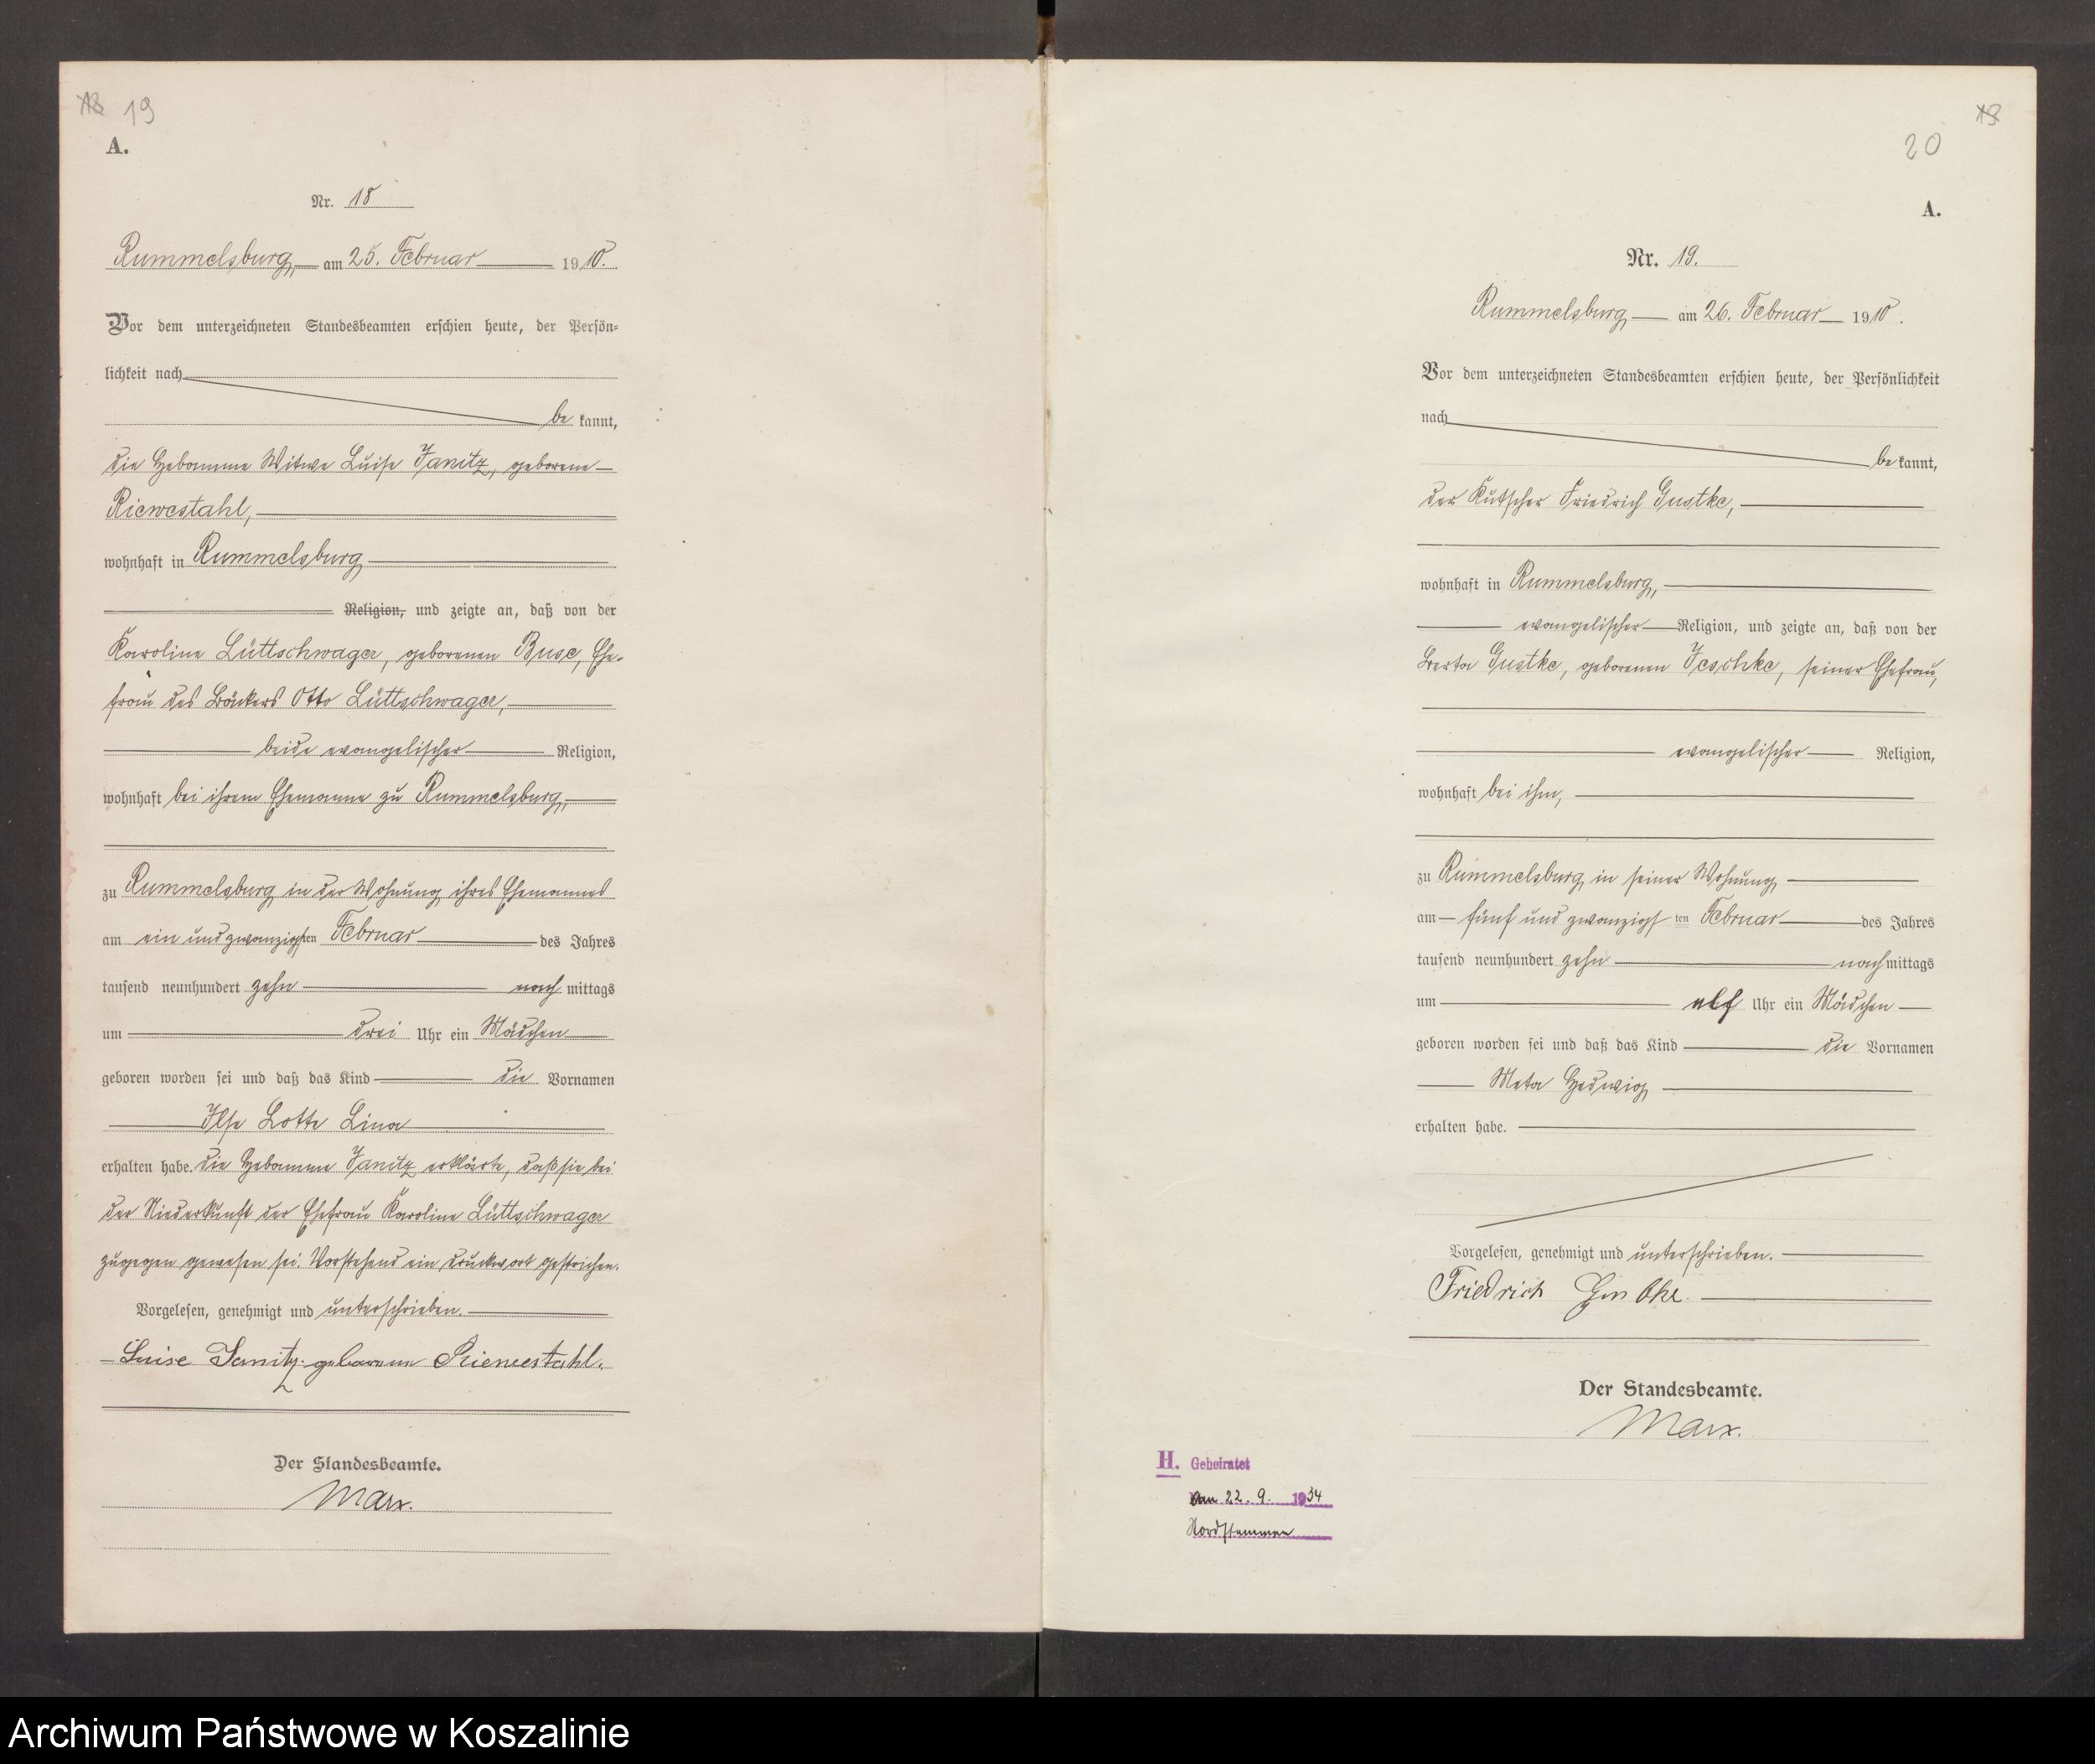 19
A.
Nr. 18
Rummelsburg, am 25. Februar 1910.
Vor dem unterzeichneten Standesbeamten erschien heute, der Persön-
lichkeit nach
be kannt,
die Hebamme Witwe Luise Janitz, geborene
Riewestahl,
wohnhaft in Rummelsburg
Religion, und zeigte an, daß von der
Karoline Lüttschwager, geborenen Buse, Ehe-
frau des Bäckers Otto Lüttschwager,
beide evangelischer Religion,
wohnhaft bei ihrem Ehemanne zu Rummelsburg,
zu Rummelsburg in der Wohnung ihres Ehemannes
am ein und zwanzigsten Februar des Jahres
tausend neunhundert zehn nach mittags
um drei Uhr ein Mädchen
geboren worden sei und daß das Kind die Vornamen
Ilse Lotte Lina
erhalten habe. Die Hebamme Janitz erklärte, daß sie bei
der Niederkunft der Ehefrau Karoline Lüttschwager
zugegen gewesen sei. Vorstehend ein Druckwort gestrichen.
Vorgelesen, genehmigt und unterschrieben.
Luise Janitz geborene Riewestahl.
Der Standesbeamte.
Marx.
20
A.
Nr. 19.
Rummelsburg, am 26. Februar 1910.
Vor dem unterzeichneten Standesbeamten erschien heute, der Persönlichkeit
nach
be kannt,
der Kutscher Friedrich Gustke,
wohnhaft in Rummelsburg,
evangelischer Religion, und zeigte an, daß von der
Berta Gustke, geborenen Jeschke, seiner Ehefrau,
evangelischer Religion,
wohnhaft bei ihm,
zu Rummelsburg in seiner Wohnung
am fünf und zwanzigsten Februar des Jahres
tausend neunhundert zehn nachmittags
um elf Uhr ein Mädchen
geboren worden sei und daß das Kind die Vornamen
Meta Hedwig
erhalten habe.
Vorgelesen, genehmigt und unterschrieben.
Friedrich Gustke.
Der Standesbeamte.
Marx.
H. Geheiratet
am 22. 9. 1934
Nordstemmen
Archiwum Państwowe w Koszalinie